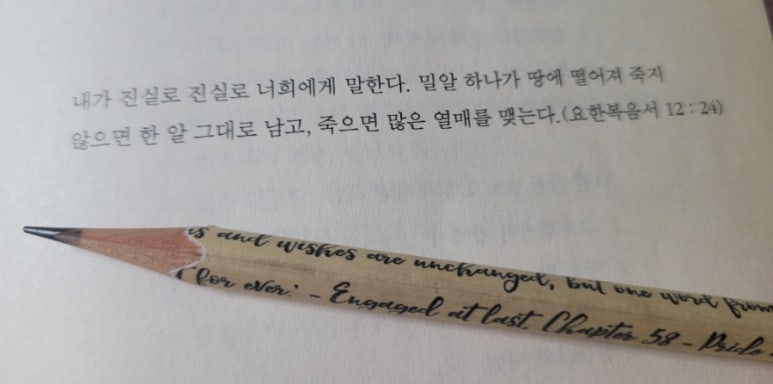 내가 진실로 진실로 너희에게 말한다. 밀알 하나가 땅에 떨어져 죽지
않으면 한 알 그대로 남고, 죽으면 많은 열매를 맺는다.(요한복음서 12 : 24)
is and wishes are unchanged, but one word from
for ever.' - Engaged at last. Chapter 58 - Pride